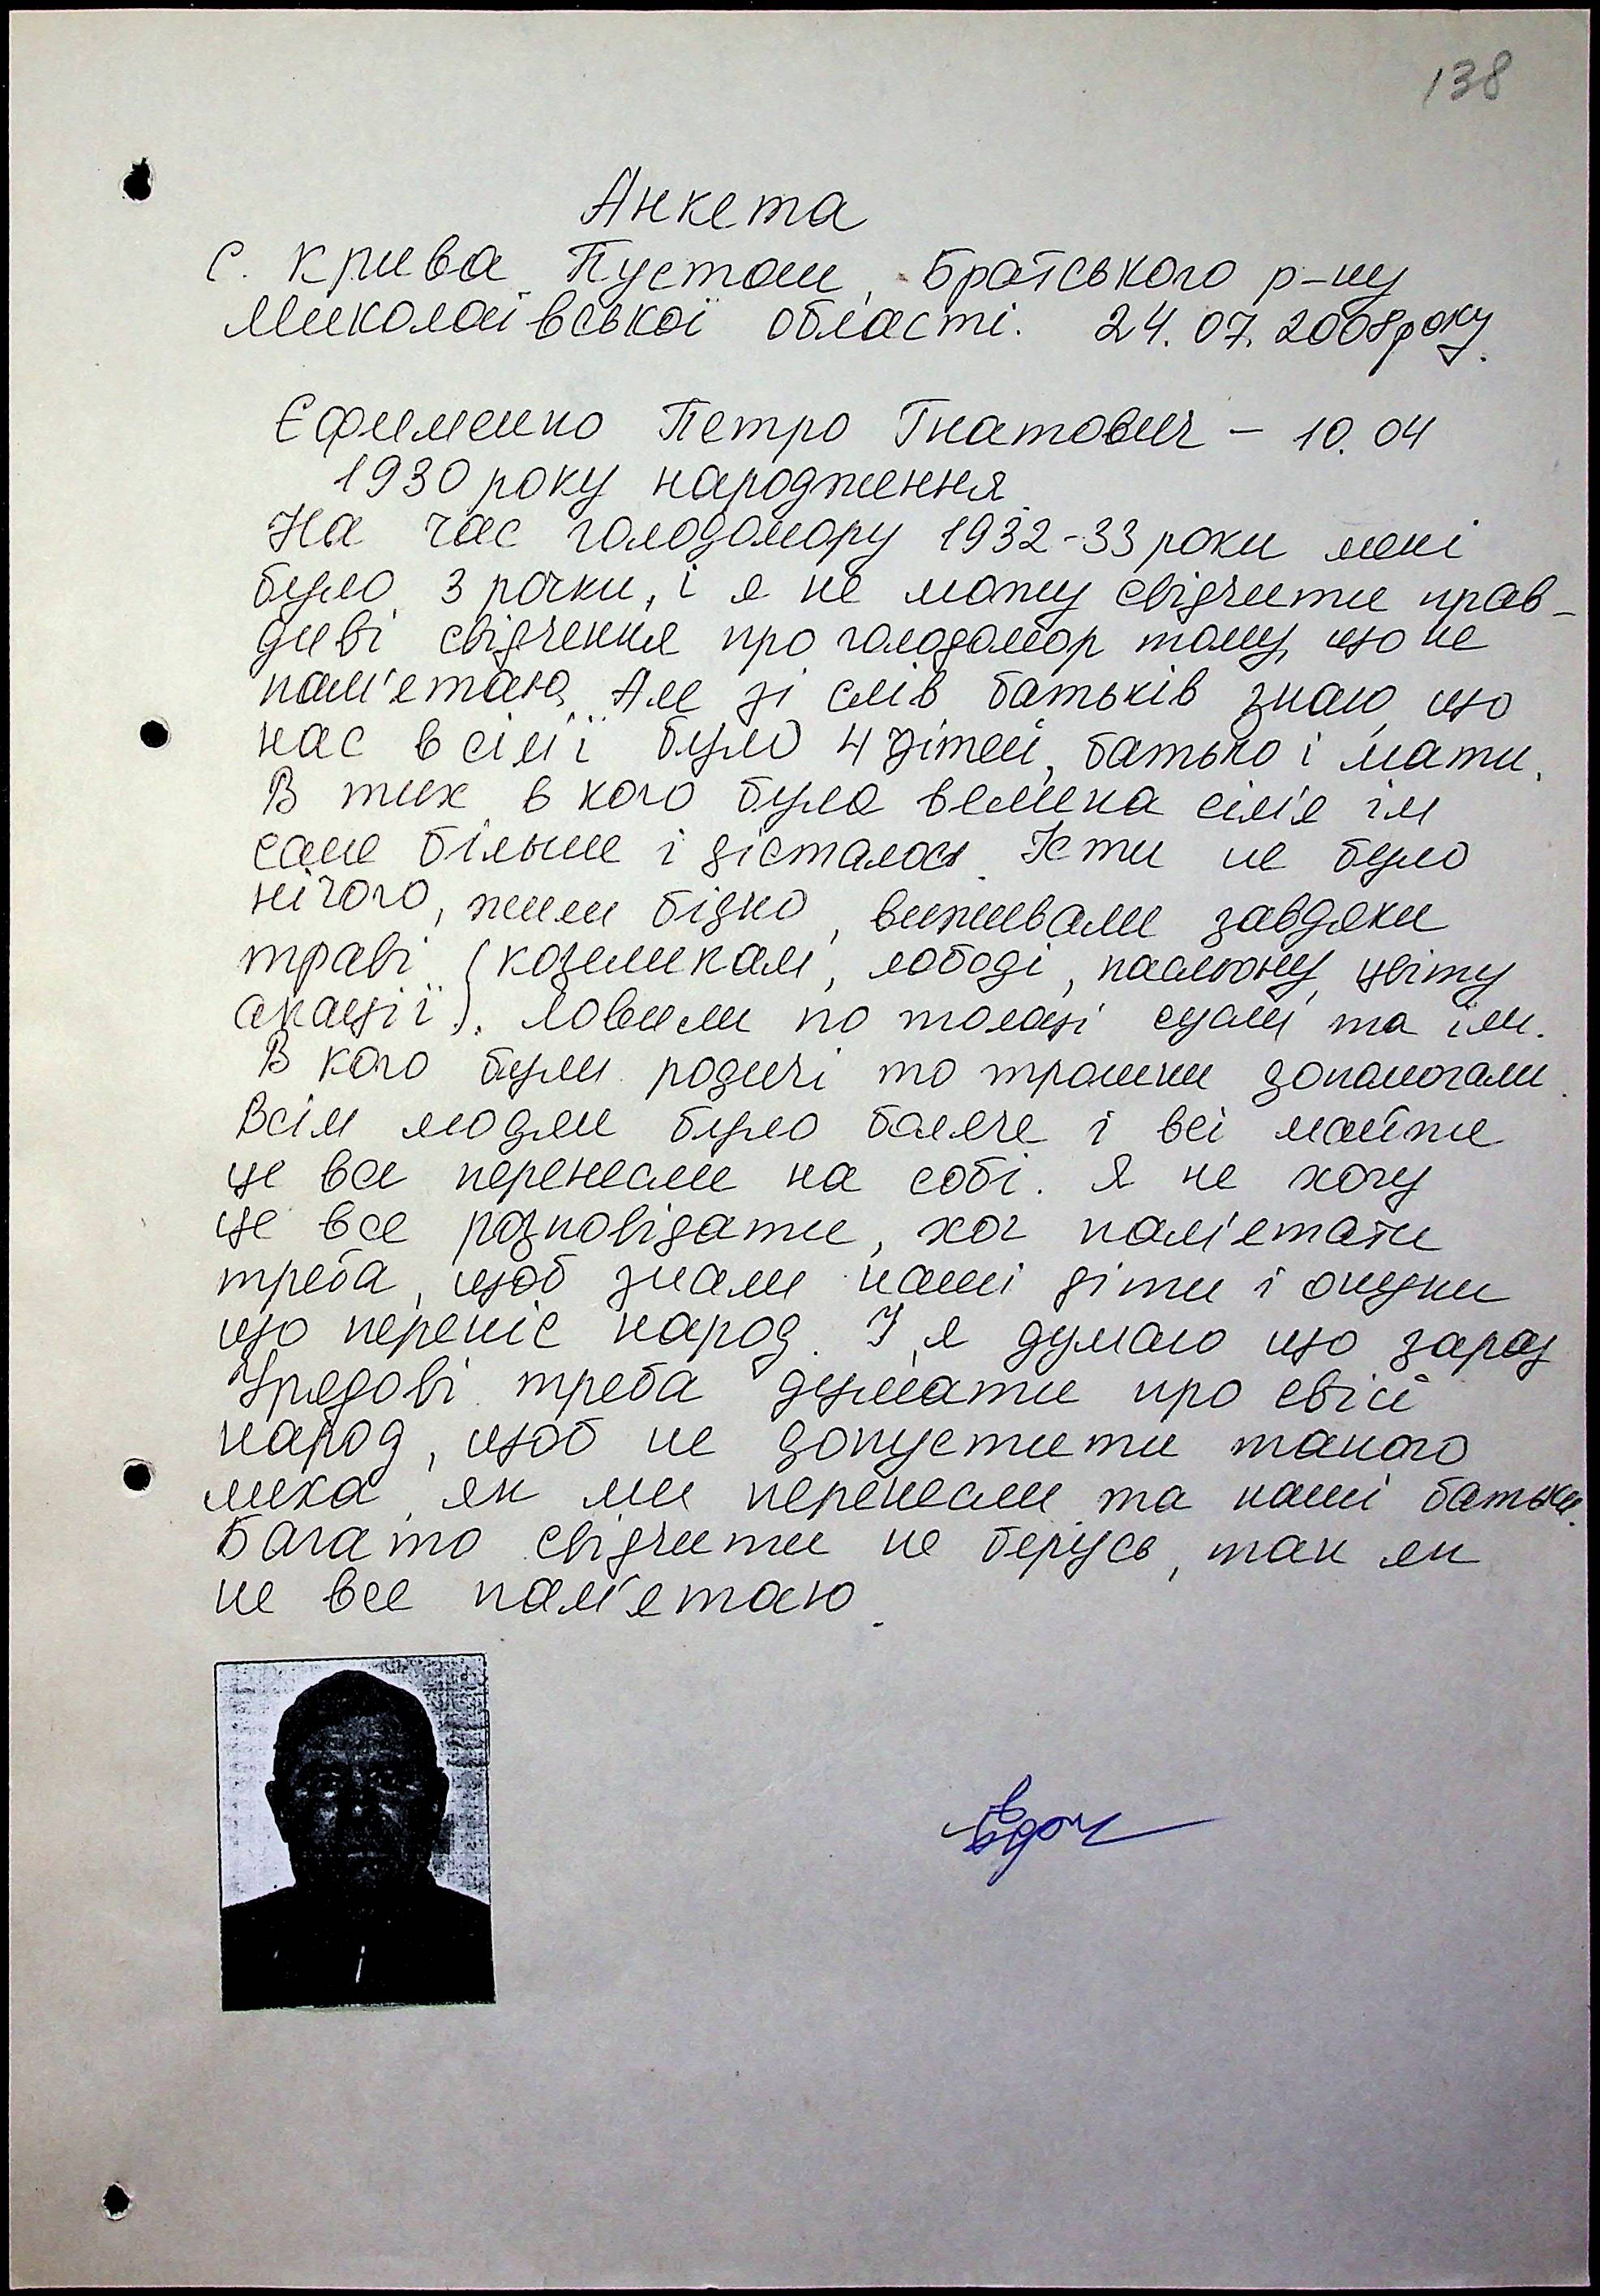 138
Анкета
с. Крива Пустош, Братського р-ну
Миколаївської області. 24.07.2008 року.
Єфименко Петро Гнатович – 10.04
1930 року народження
На час голодомору 1932-33 роки мені
було 3 рочки, і я не можу свідчити прав-
диві свідчення про голодомор тому, що не
пам'ятаю. Але зі слів батьків знаю, що
нас в сім'ї було 4 дітей, батько і мати.
В тих в кого була велика сім'я їм
саме більше і дісталося. Їсти не було
нічого, жили бідно, виживали завдяки
траві (козеликам, лободі, пасльону, цвіту
акації). Ловили по толоці сусли та їли.
В кого були родичі то трошки допомогали.
Всім людям було боляче і всі майже
це все перенесли на собі. Я не хочу
це все розповідати, хоч пам'ятати
треба, щоб знали наші діти і онуки
що переніс народ. І я думаю що зараз
Урядові треба думати про свій
народ, щоб не допустити такого
лиха, як ми перенесли та наші батьки.
Багато свідчити не берусь, так як
не все пам'ятаю.